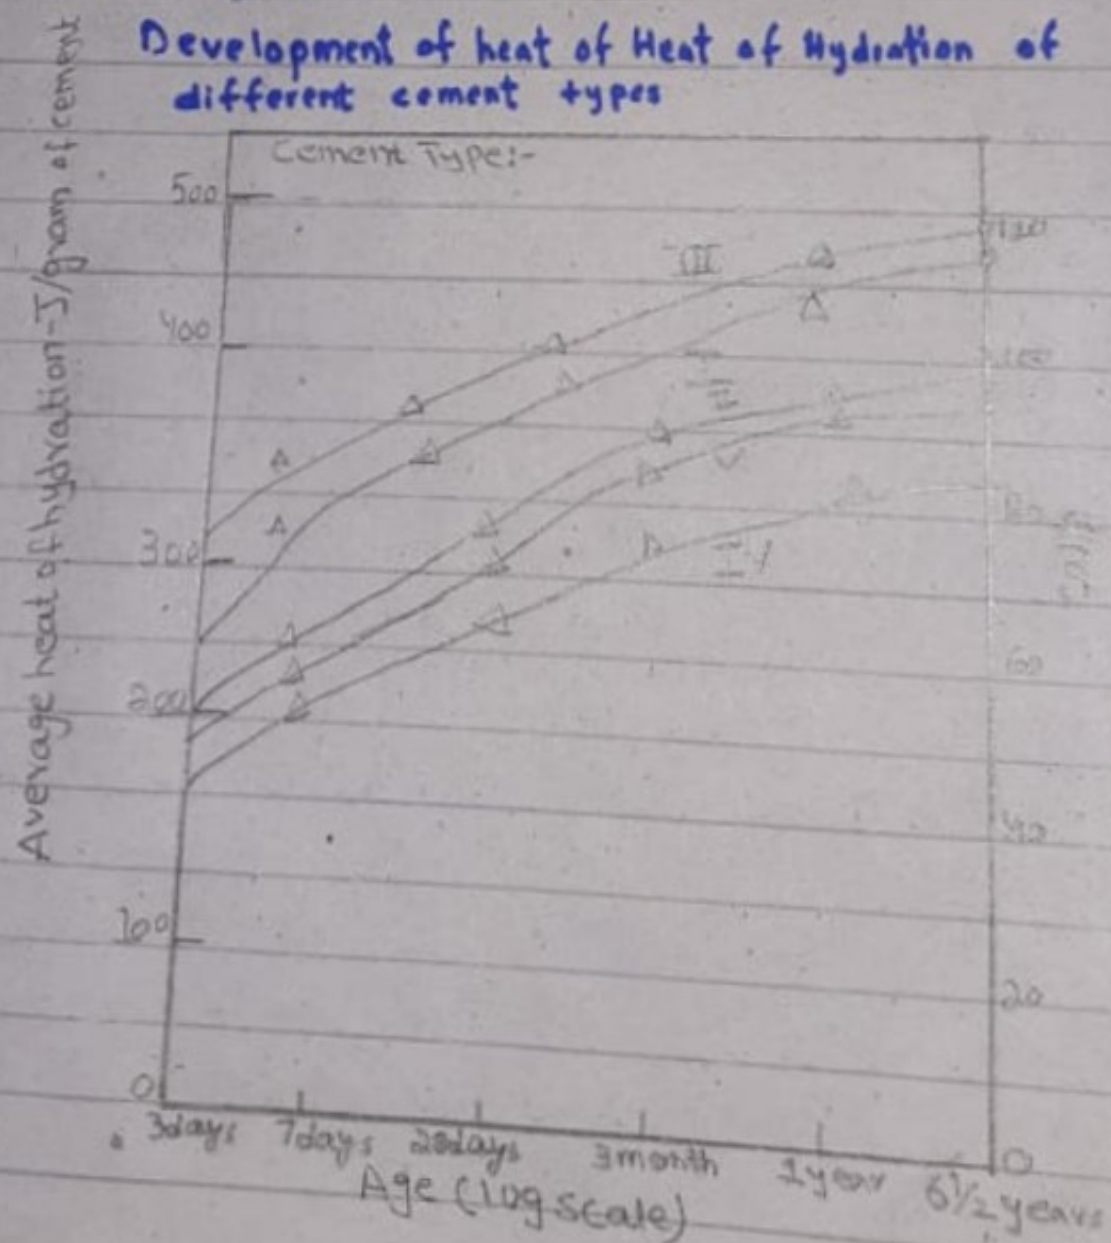 Development of heat of Heat of Hydration of
different cement types
Average heat of hydration-J/gram of cement
Cement Type:-
500
400
300
200
100
0
III
I
II
V
IV
120
100
80
60
40
20
0
Cal/g
3days 7days 28days 3month 1year 6 1/2 years
Age (log scale)